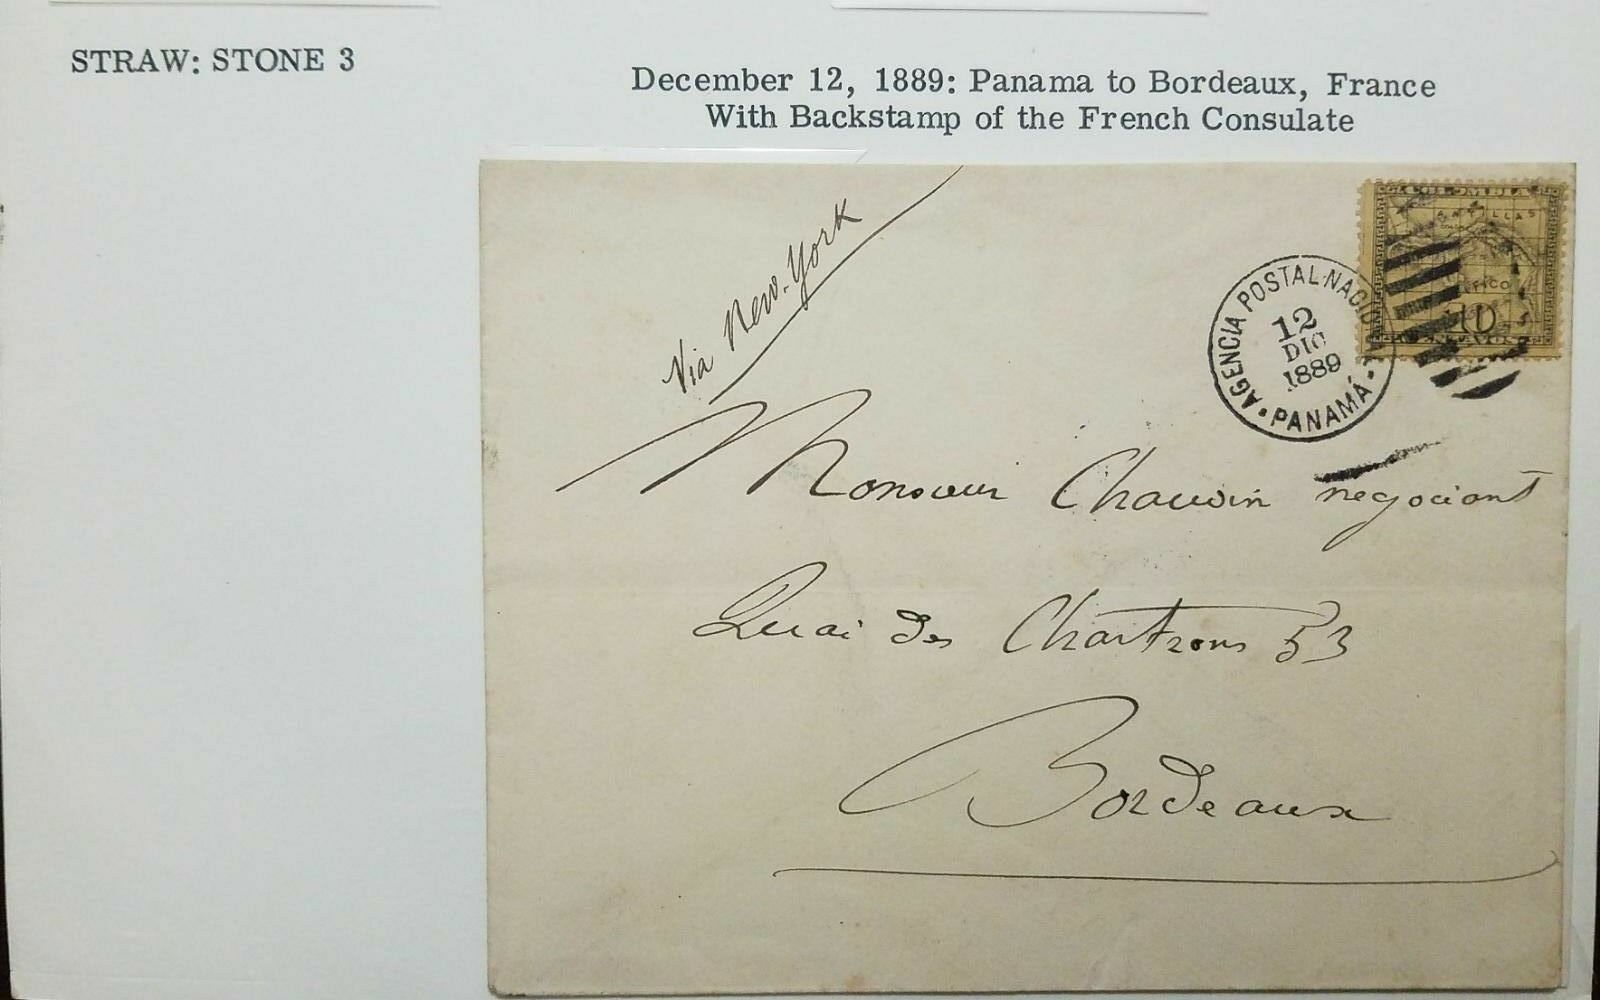 STRAW: STONE 3
December 12, 1889: Panama to Bordeaux, France
With Backstamp of the French Consulate
Via New-York
COLOMBIA
ANTILLAS
10
AGENCIA POSTAL NACIONAL
12
DIC
1889
PANAMÁ
Monsieur Chauvin negociant
Quai des Chartrons 53
Bordeaux